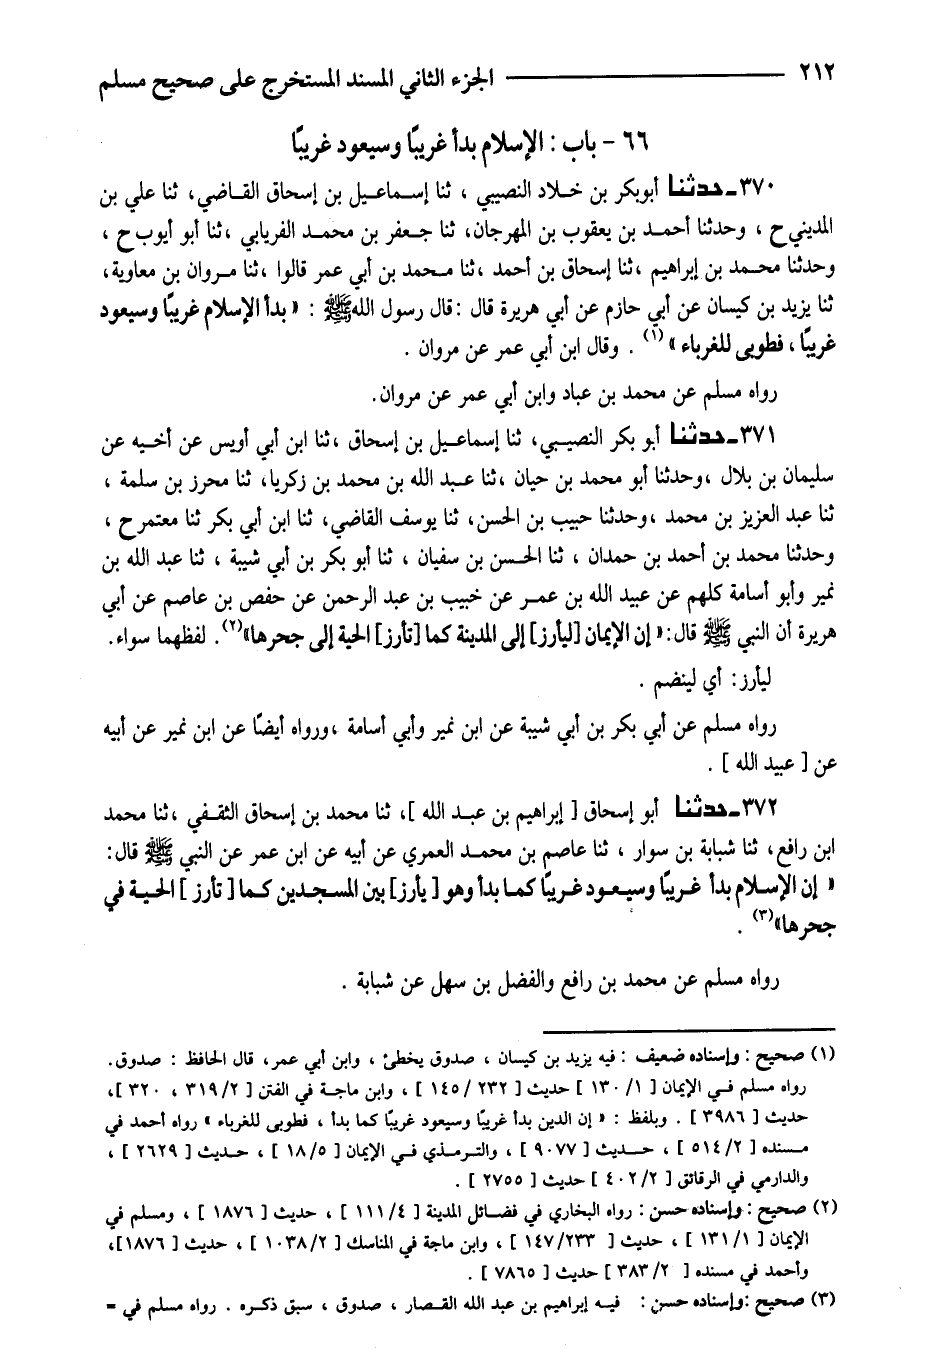 ٢١٢ ——— الجزء الثاني المسند المستخرج على صحيح مسلم
٦٦ - باب : الإسلام بدأ غريبًا وسيعود غريبًا
٣٧٠ـ حدثنا أبوبكر بن خلاد النصيبي ، ثنا إسماعيل بن إسحاق القاضي، ثنا علي بن
المديني ح ، وحدثنا أحمد بن يعقوب بن المهرجان، ثنا جعفر بن محمد الفريابي ،ثنا أبو أيوب ح ،
وحدثنا محمد بن إبراهيم ،ثنا إسحاق بن أحمد ،ثنا محمد بن أبي عمر قالوا ،ثنا مروان بن معاوية،
ثنا يزيد بن كيسان عن أبي حازم عن أبي هريرة قال :قال رسول الله ﷺ : « بدأ الإسلام غريبًا وسيعود
غريبًا ، فطوبى للغرباء » (١) . وقال ابن أبي عمر عن مروان .
رواه مسلم عن محمد بن عباد وابن أبي عمر عن مروان.
٣٧١ـ حدثنا أبو بكر النصيبي، ثنا إسماعيل بن إسحاق ،ثنا ابن أبي أويس عن أخيه عن
سليمان بن بلال ،وحدثنا أبو محمد بن حيان ،ثنا عبد الله بن محمد بن زكريا، ثنا محرز بن سلمة ،
ثنا عبد العزيز بن محمد ،وحدثنا حبيب بن الحسن، ثنا يوسف القاضي، ثنا ابن أبي بكر ثنا معتمر ح ،
وحدثنا محمد بن أحمد بن حمدان ، ثنا الحسن بن سفيان ، ثنا أبو بكر بن أبي شيبة ، ثنا عبد الله بن
نمير وأبو أسامة كلهم عن عبيد الله بن عمر عن خبيب بن عبد الرحمن عن حفص بن عاصم عن أبي
هريرة أن النبي ﷺ قال:« إن الإيمان [ليأرز] إلى المدينة كما [تأرز] الحية إلى جحرها»(٢). لفظهما سواء.
ليأرز: أي لينضم .
رواه مسلم عن أبي بكر بن أبي شيبة عن ابن نمير وأبي أسامة ،ورواه أيضًا عن ابن نمير عن أبيه
عن [ عبيد الله ] .
٣٧٢ـ حدثنا أبو إسحاق [ إبراهيم بن عبد الله ]، ثنا محمد بن إسحاق الثقفي ،ثنا محمد
ابن رافع، ثنا شبابة بن سوار ، ثنا عاصم بن محمد العمري عن أبيه عن ابن عمر عن النبي ﷺ قال:
« إن الإسلام بدأ غريبًا وسيعود غريبًا كما بدأ وهو [ يأرز] بين المسجدين كما [ تأرز ] الحية في
جحرها»(٣) .
رواه مسلم عن محمد بن رافع والفضل بن سهل عن شبابة .
(١) صحيح : وإسناده ضعيف : فيه يزيد بن كيسان ، صدوق يخطئ ، وابن أبي عمر، قال الحافظ : صدوق.
رواه مسلم في الإيمان [ ١/ ١٣٠ ] حديث [ ٢٣٢ / ١٤٥ ] ، وابن ماجة في الفتن [ ٢/ ٣١٩ ، ٣٢٠ ]،
حديث [ ٣٩٨٦ ] . وبلفظ : « إن الدين بدأ غريبًا وسيعود غريبًا كما بدأ ، فطوبى للغرباء » رواه أحمد في
مسنده [ ٢/ ٥١٤ ] ، حديث [ ٩٠٧٧ ] ، والترمذي في الإيمان [ ٥/ ١٨ ] ، حديث [ ٢٦٢٩ ] ،
والدارمي في الرقائق [ ٢/ ٤٠٢ ] حديث [ ٢٧٥٥ ] .
(٢) صحيح : وإسناده حسن : رواه البخاري في فضائل المدينة [ ٤/ ١١١ ] ، حديث [ ١٨٧٦ ] ، ومسلم في
الإيمان [ ١/ ١٣١ ] ، حديث [ ٢٣٣/ ١٤٧ ] ، وابن ماجة في المناسك [ ٢/ ١٠٣٨ ] ، حديث [ ١٨٧٦]،
وأحمد في مسنده [ ٢/ ٣٨٣ ] حديث [ ٧٨٦٥ ] .
(٣) صحيح :وإسناده حسن : فيه إبراهيم بن عبد الله القصار ، صدوق ، سبق ذكره . رواه مسلم في =